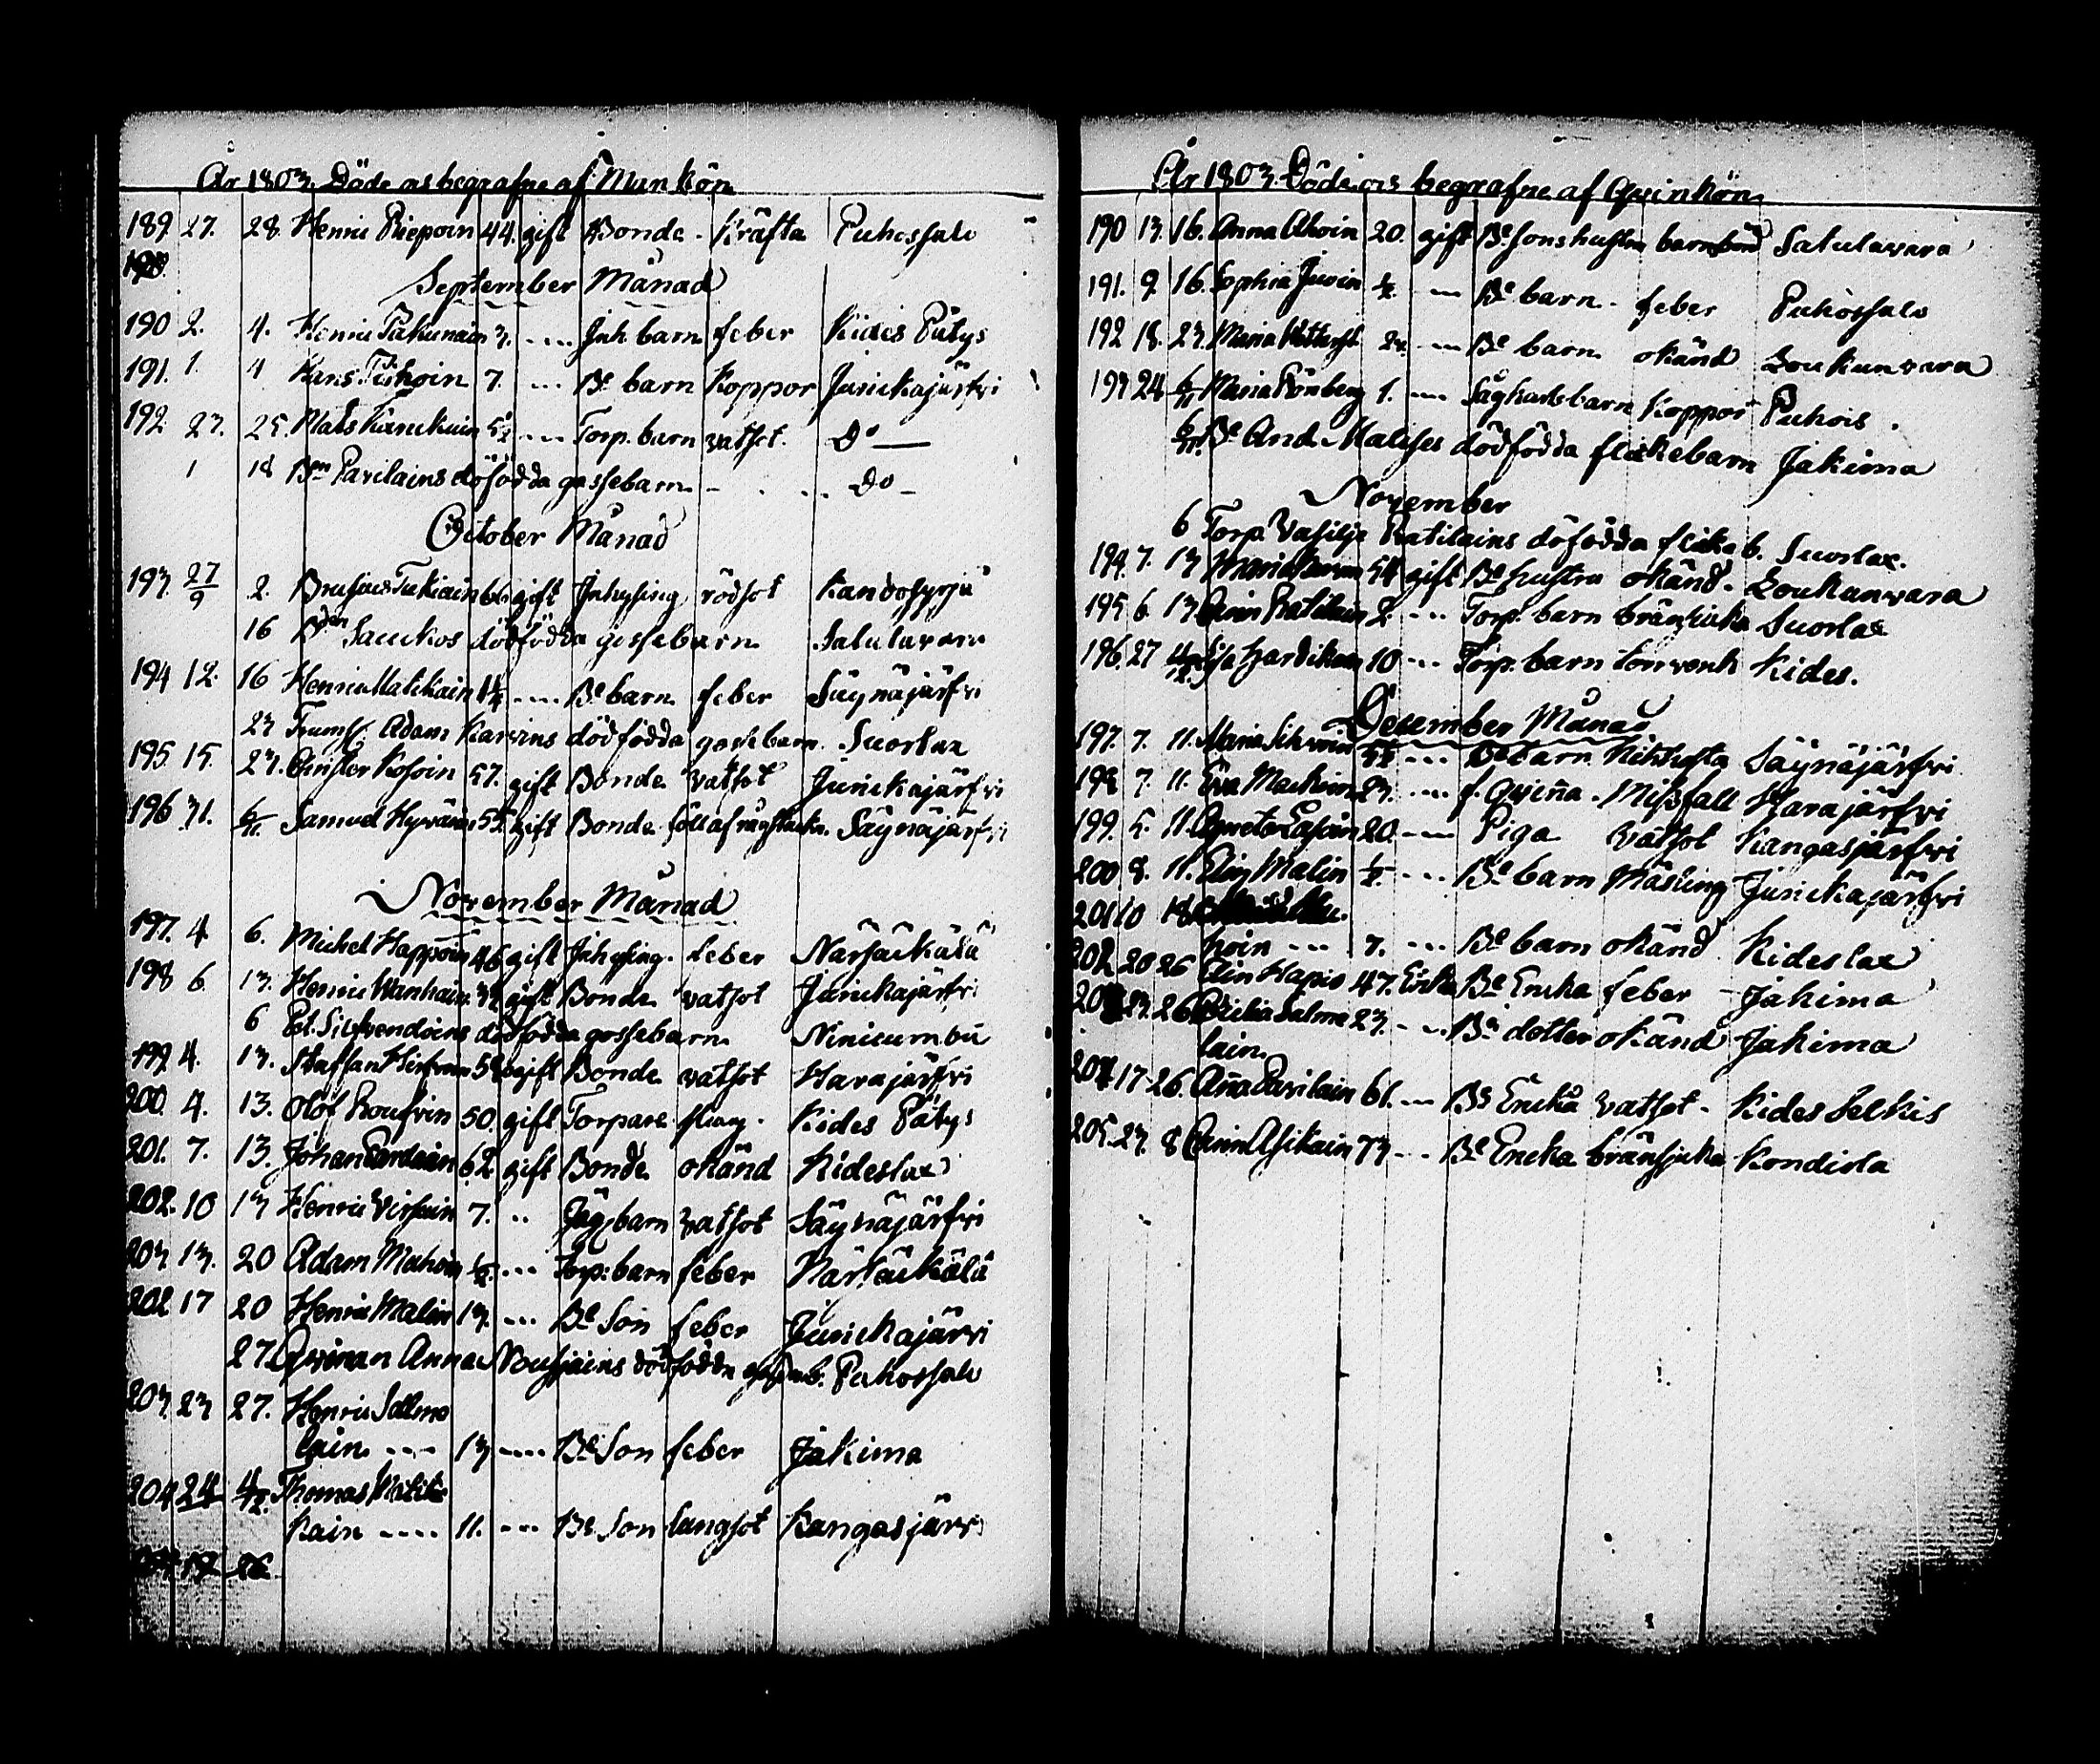 År 1803. Döde oc begrafne af Mankön
189. 27. 28. Henric Piepoin 44. gift Bonde. Kräfta Puhossalo
September Månad
190 2. 4. Henric Pakunain 3. .... Inh. barn feber Kides Pätys
191. 1. 4 Hans Tiihoin 7. ... Be. barn Koppor Jurickajärfvi
192. 23. 25. Mats Karickain 5½ .... Torp. barn vatsot. Do —
1 18 Bn Pavilains döfödda gossebarn - . .. Do -
October Månad
193. 27/9 2. Brusius Tukiain 66 gift Inhysing rödsot Kandosyrja
16 Bden Sauckos dödfödda gossebarn Salulavara
194 12. 16 Henric Matikain 1½ .... Be. barn feber Säynäjärfvi
23 Trumsl. Adam Karvins dödfödda gossebarn. Suorlax
195. 15. 23. Christer Kosoin 57. gift Bonde vatsot Jurickajärfvi
196 31. 6/11. Samuel Hyväri 55. gift Bonde Söll af rågstacken. Säynäjärfvi
November Månad
197. 4. 6. Michel Happoin 46 gift Inhysing. feber Närsäckälä
198 6. 13. Henric Wanhain. 39. gift Bonde vatsot Jurickajärfvi
6 Pet. Siekendoins dödfödda gossebarn Ninicumbu
199. 4. 13. Staffan Hirfvon 58 gift Bonde vatsot Harajärfvi
200. 4. 13. Olof Koufvin 50. gift Torpare slag. Kides Pätys
201. 7. 13. Johan Pardain 62. gift Bonde okänd Kideslax
202. 10 13 Henric Virsuin 7. .. Jäg. barn vatsot Säynäjärfvi
203 13. 20 Adam Mahoin ½. ... Torp: barn feber Närsäckälä
202 17 20 Henric Malin 13. ... Be Son feber Jurickajärvi
27. Qwinan Anna Nousiains dödfödda gosseb. Puhossalo
203. 23 27. Henric Sallmo
lain. .... 13 .... Be Son feber Jakima
204 24 4/12. Thomas Matti
kain .... 11. ... Be Son langsot Kangasjärvi
År 1803. Döde oc begrafne af Qwinkön
190 13. 16. Anna Ahoin 20. gift Be. sons hustru barnsbörd Salulavara
191. 9. 16. Sophia Juvin ½. — Be barn. feber Puhossalo
192 18. 23. Maria 23. — Be barn okänd Loukunvara
193 24 6/11 Maria Rönberg 1. .... Sågkarls barn Koppor Puhois.
6/11. Be And. Malises dödfödda flickebarn Jakima
November
6 Torp. Vasilje Ratilains döfödda flickeb. Suorlax.
194. 7. 13 Maria 54 gift Be. hustru okänd. Loukunvara
195 6. 13 Anin Ratilain 2. ... Torp. barn bränsjuka Suorlax
196. 27 4/12. Eja Hardikain 10 ... Torp. barn torrverk Kides.
December Månad
197. 7. 11. Maria Sikvoin 5½ ... Be barn Kikhosta Säynäjärfvi
198 7. 11. Eva Mackoin 23. .... f. Qwiña. Missfall Harajärfvi
199. 5. 11. Agneta Lasain 20. — Piga vatsot Kangasjärfvi
200 8. 11. Elin Malin ½. ... Be. barn Mäsling Jurickajärfvi
201 10 18
hoin ... 7. ... Be barn okänd. Kideslax
202. 20 26 Elin Hapio 47. Encka Be Encka feber - Jakima
203 23. 26. Cecilia Salmo 23. ... Be dotter okänd Jakima
lain.
204 17. 26. Aña Pavilain 61. — Be Encka vatsot. Kides Selkis
205. 23. 8 Anin Asikain 73 ... Be Encka bränsjuka Kondiola